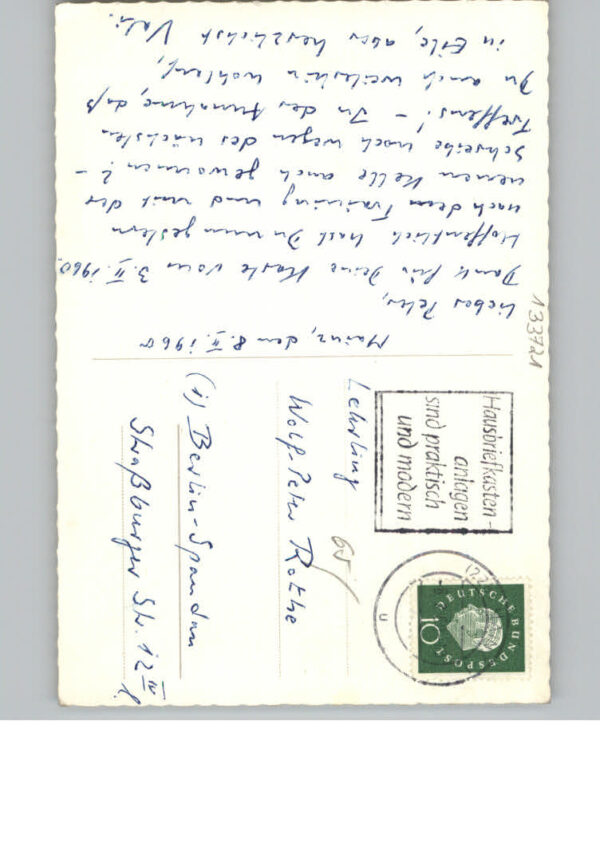 Mainz, den 8. II. 1960
Lieber Peter,
Dank für Deine Karte vom 3. II. 1960.
Hoffentlich hast Du nun gestern
nach dem Training und mit der
neuen Kelle auch gewonnen? –
Schreibe noch wegen des nächsten
Treffens! – In der Annahme, daß
Du auch weiterhin wohlauf,
in Eile, aber herzlichst
133721
Hausbriefkasten-
anlagen
sind praktisch
und modern
DEUTSCHE BUNDESPOST
10
Lehrling
Wolf-Peter Rothe
(1) Berlin-Spandau
Straßburger Str. 12 IV